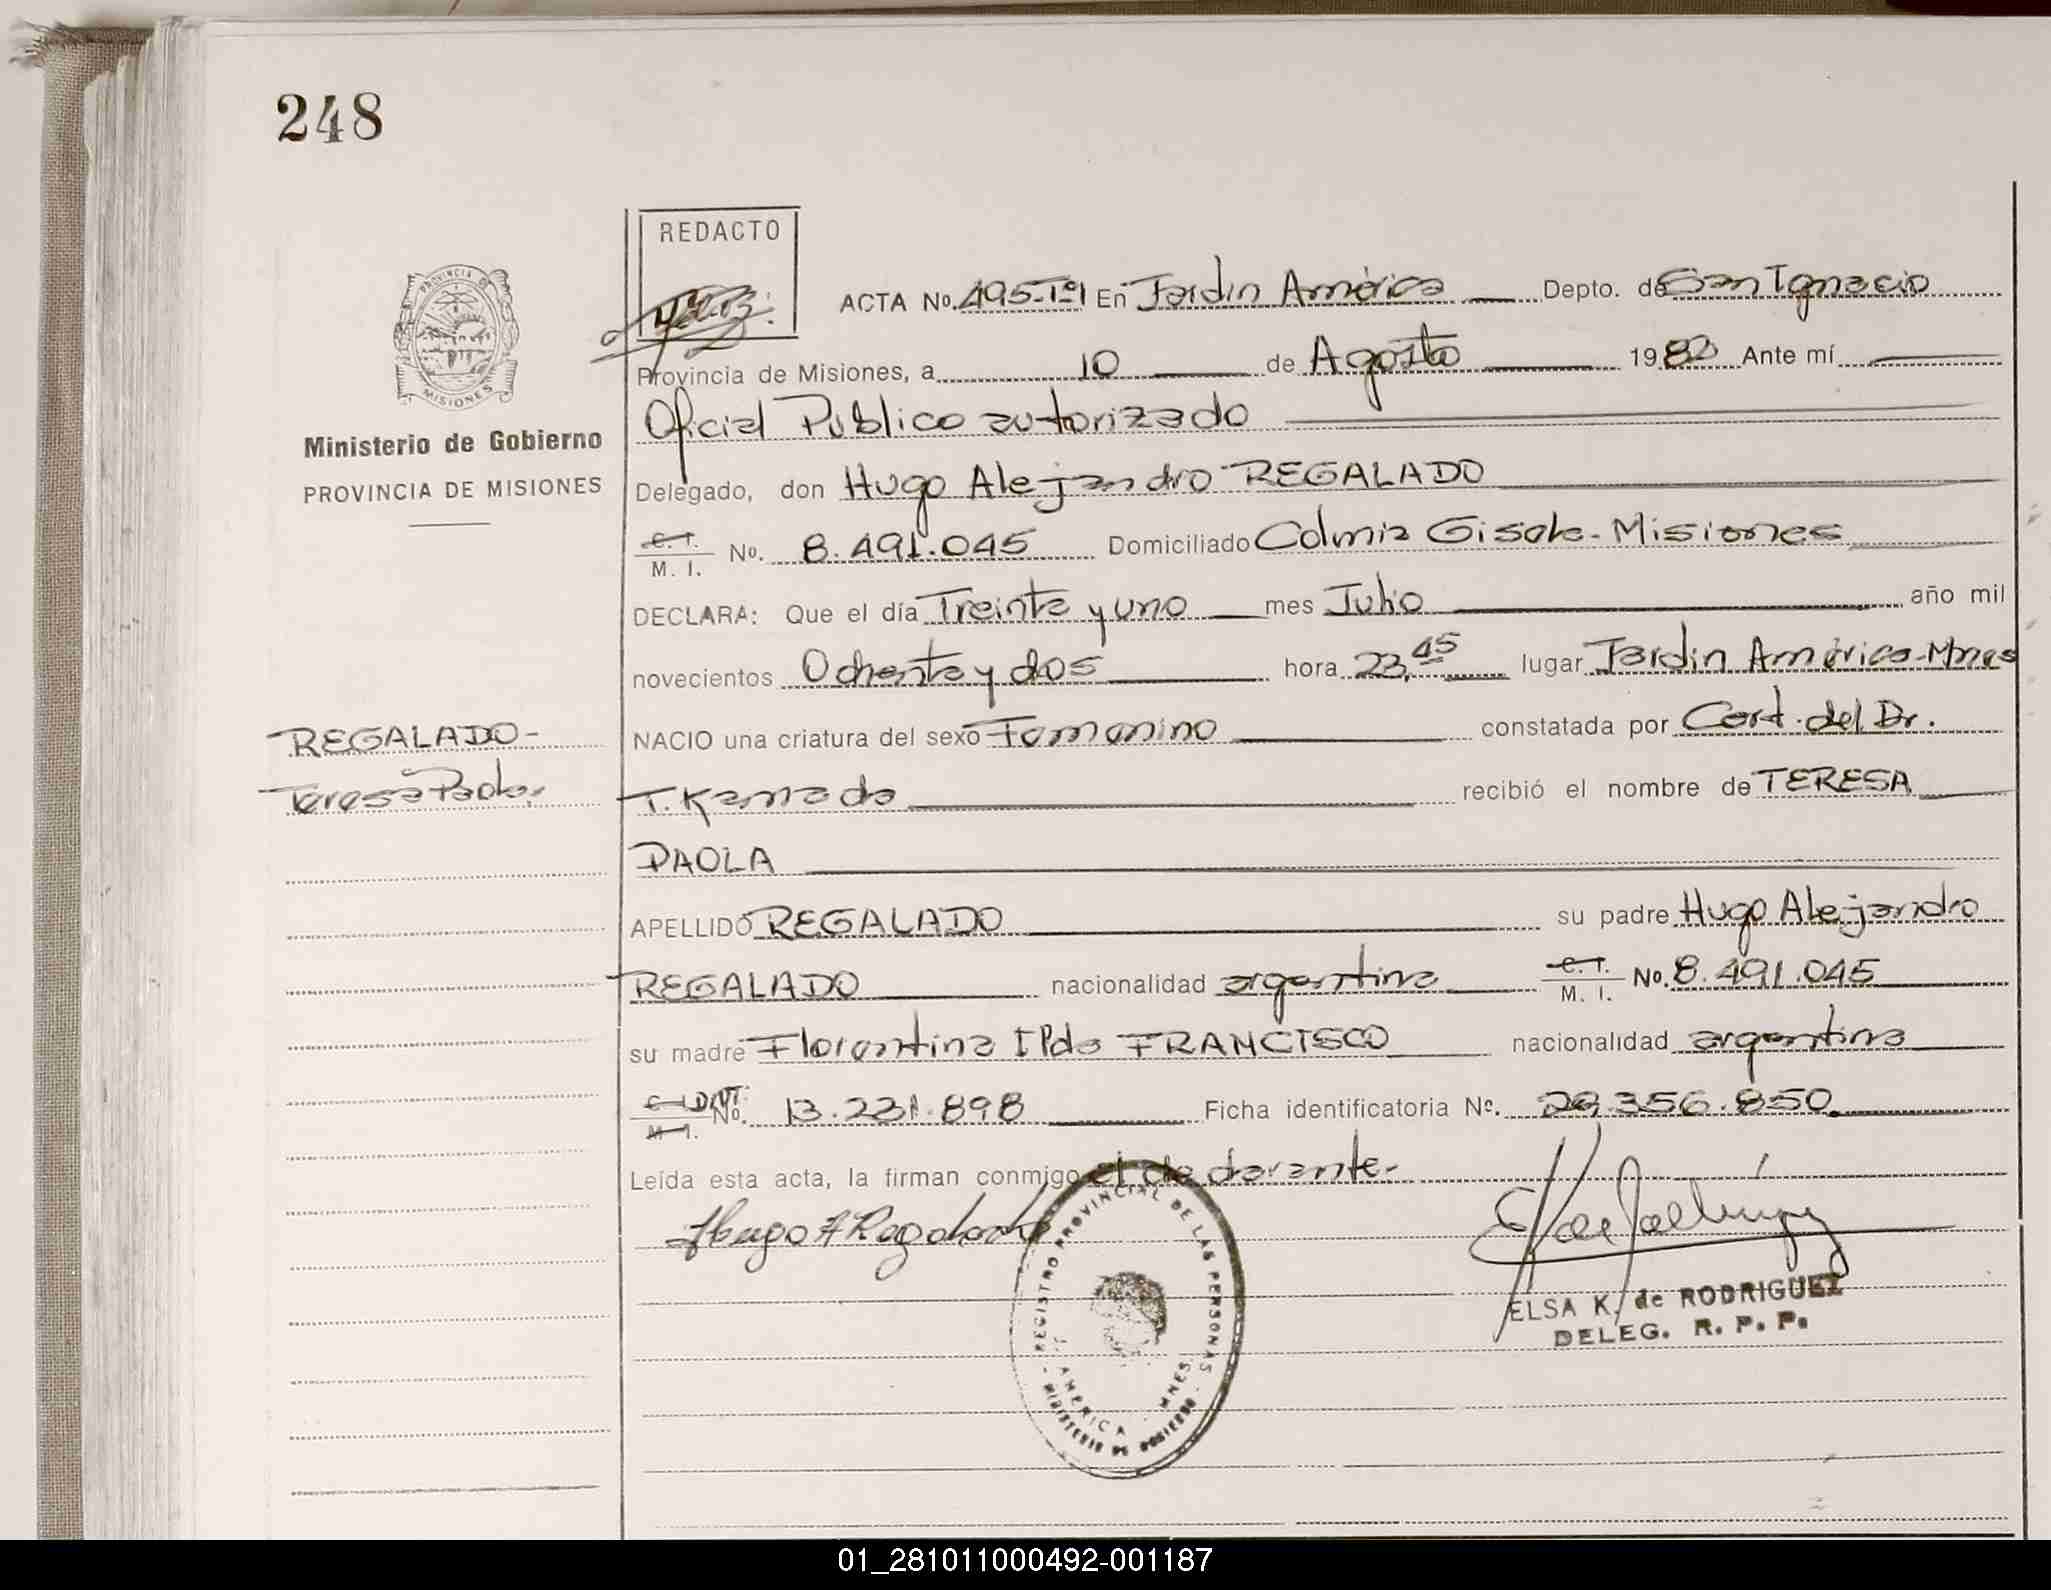 248
REDACTO
ACTA No. 495-Tº1 En Jardin América Depto. de San Ignacio
Provincia de Misiones, a 10 de Agosto 1982 Ante mí
Oficial Publico autorizado
Delegado, don Hugo Alejandro REGALADO
C. I. M. I. No. 8.491.045 Domiciliado Colonia Gisela-Misiones
DECLARA: Que el día Treinta y uno mes Julio año mil
novecientos Ochenta y dos hora 23,45 lugar Jardin América-Mnes
NACIO una criatura del sexo Femenino constatada por Cert. del Dr.
T. Kamada recibió el nombre de TERESA
PAOLA
APELLIDO REGALADO su padre Hugo Alejandro
REGALADO nacionalidad argentina C. I. M. I. No. 8.491.045
su madre Florentina Ilda FRANCISCO nacionalidad argentina
No. 13.231.898 Ficha identificatoria Nº. 29.356.850
Leída esta acta, la firman conmigo el declarante.-
Hugo A Regalado
ELSA K. de RODRIGUEZ
DELEG. R. P. P.
REGISTRO PROVINCIAL DE LAS PERSONAS
J. AMERICA - MNES.
MINISTERIO DE GOBIERNO
PROVINCIA DE MISIONES
Ministerio de Gobierno
PROVINCIA DE MISIONES
REGALADO-
Teresa Paola.
01_281011000492-001187